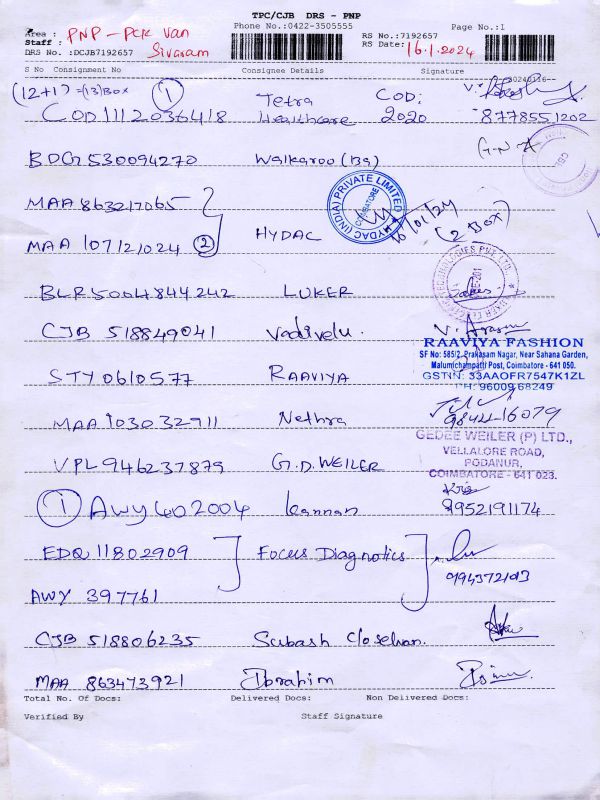 TPC/CJB DRS - PNP
Phone No.:0422-3505555 Page No.:1
Area : PNP - PCK Van RS No.:7192657
Staff : Sivaram RS Date: 16.1.2024
DRS No. :DCJB7192657
S No Consignment No Consignee Details Signature
20240116
(12+1) =(13) Box 1 Tetra COD:
COD1112036418 Healthcare 2020 8778551202
BDG530094270 Walkaroo (Bg) G.N
MAA 863217065
HYDAC (INDIA) PRIVATE LIMITED COIMBATORE
16/01/24
(2 BOX)
MAA 107121024 2 HYDAC
BLR5004844242 LUKER
CJB 518849041 Vadivelu. V. Arasu
RAAVIYA FASHION
SF No: 585/2, Prakasam Nagar, Near Sahana Garden,
Malumichampatti Post, Coimbatore - 641 050.
GSTNN: 33AAOFR7547K1ZL
PH: 96009 68249
STY0610577 RAAVIYA
MAA 103032711 Nethra 98422-16079
GEDEE WEILER (P) LTD.,
VELLALORE ROAD,
PODANUR,
COIMBATORE - 641 023.
VPL946237875 G.D.WEILER
1 AWY602004 Kannan 9952191174
EDQ 11802909 Focus Diagnotics
AWY 397761
CJB 518806235 Subash
MAA 863473921 Ibrahim
Total No. Of Docs: Delivered Docs: Non Delivered Docs:
Verified By Staff Signature